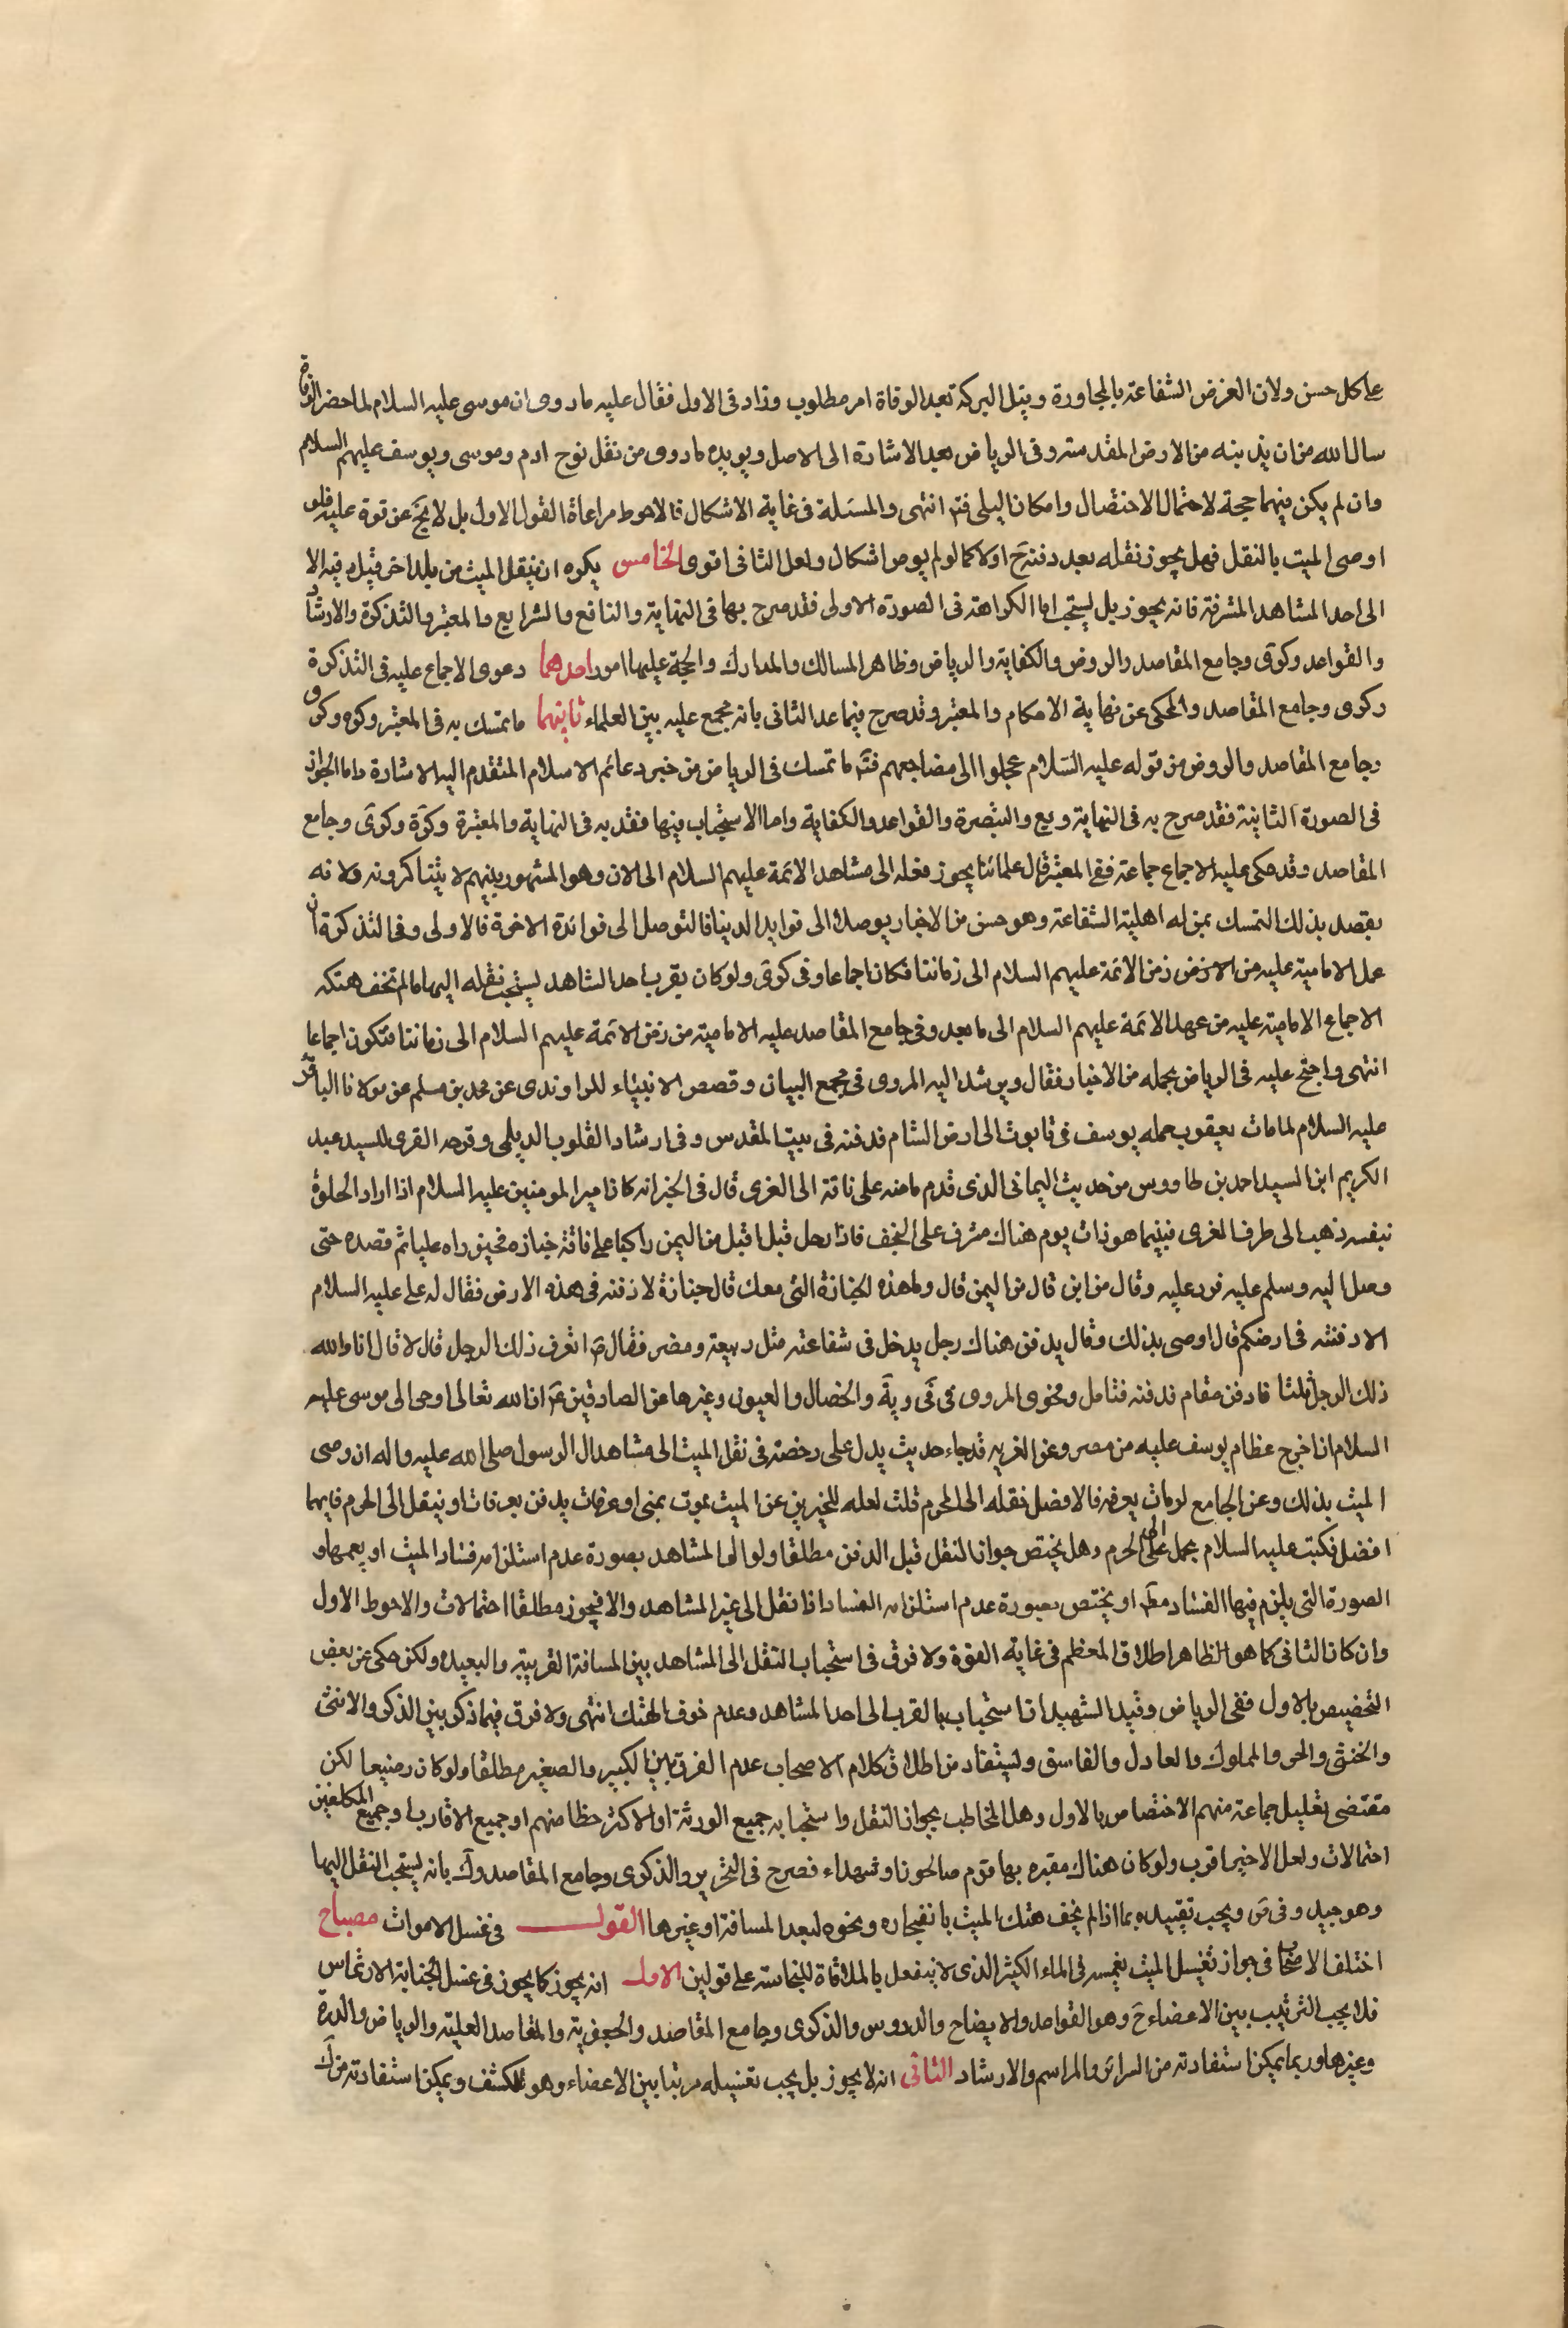 على كل حسن ولان الغرض الشفاعة بالمجاورة ونيل البركة بعد الوفاة امر مطلوب وزاد فى الاول فقال عليه ماروى ان موسى عليه السلام لما حضر الوفاة
سال الله من ان يدنيه من الارض المقدسة وفى الرياض بعد الاشارة الى الاصل ويويده ماروى من نقل نوح ادم وموسى ويوسف عليهم السلام
وان لم يكن فيهما حجة لاحتمال الاختصاص وامكان البلى فتم انتهى والمسئلة فى غاية الاشكال فالاحوط مراعاة القول الاول بل لا يخ عن قوة عليه فلو
اوصى الميت بالنقل فهل يجوز نقله بعد دفنه ح اولا كما لو لم يوص اشكال ولعل الثانى اقوى الخامس يكره ان ينقل الميت من بلد اخر قبل دفنه الا
الى احد المشاهد المشرفة فانه يجوز بل يستحب اما الكراهة فى الصورة الاولى فقد صرح بها فى النهاية والنافع والشرايع والمعتبر والتذكرة والارشاد
والقواعد وكوى وجامع المقاصد والروض والكفاية والرياض وظاهر المسالك والمدارك والحجة عليها امور احدهما دعوى الاجماع عليه فى التذكرة
وكوى وجامع المقاصد والمحكى عن نهاية الاحكام والمعتبر وقد صرح فيما عدا الثانى بانه مجمع عليه بين العلماء ثانيهما ما تمسك به فى المعتبر وكره وكوى
وجامع المقاصد والروض من قوله عليه السلام عجلوا الى مضاجعهم فتم ما تمسك فى الرياض من خبر دعائم الاسلام المتقدم اليه الاشارة واما الجواز
فى الصورة الثانية فقد صرح به فى النهاية ويع والتبصرة والقواعد والكفاية واما الاستحباب فيها فقد به فى النهاية والمعتبرة وكرة وكوى وجامع
المقاصد وقد حكى عليه الاجماع جماعة ففى المعتبر قال علمائنا يجوز نقله الى مشاهد الائمة عليهم السلام الى الان وهو المشهور بينهم لا يتناكرونه ولانه
يقصد بذلك التمسك بمن له اهلية الشفاعة وهو حسن من الاخبار يوصل الى فوايد الدنيا فالتوصل الى فوائدة الاخرة فالاولى وفى التذكرة ان
عمل الامامية عليه من الارض زمن الائمة عليهم السلام الى زماننا فكان اجماعا وفى كوى ولو كان يقرب احد الشاهد يستحب نقله اليها مالم تخف هتكه
الاجماع الامامية عليه من عهد الائمة عليهم السلام الى ما بعد وفى جامع المقاصد عليه الامامية من زمن الائمة عليهم السلام الى زماننا فتكون اجماعا
انتهى واحتج عليه فى الرياض بجمله من الاخبار فقال ويرشد اليه المروى فى مجمع البيان وقصص الانبياء للراوندى عن محمد بن مسلم عن مولانا الباقر
عليه السلام لما مات يعقوب حمله يوسف فى تابوت الى ارض الشام فدفنه فى بيت المقدس وفى ارشاد القلوب الديلمى وفرحه القرى للسيد عبد
الكريم ابن السيد احمد بن طاووس من حديث اليمانى الذى قدم مامنه على ناقة الى الغرى قال فى الخبر انه كان امير المومنين عليه السلام اذا اراد الخلوة
بنفسه ذهب الى طرف الغرى فبينما هو ذات يوم هناك مشرف على النجف فاذا رجل قبل اقبل من اليمن راكبا على ناقة جنازه فحين راه عليا ثم قصده حتى
وصل اليه وسلم عليه فرد عليه وقال من اين قال من اليمن قال ولهذه الجنازة التى معك قال جنازة لادفنه فى هذه الارض فقال له على عليه السلام
الا دفنته فى ارضكم قال اوصى بذلك وقال يدفن هناك رجل يدخل فى شفاعته مثل ربيعة ومضر فقال ع اتعرف ذلك الرجل قال لا قال انا والله
ذلك الرجل ثلثا فادفن مقام فدفنه فتامل ونحوى المروى فى فى ويه والخصال والعيون وغيرها عن الصادقين ع ان الله تعالى اوحى الى موسى عليه
السلام ان اخرج عظام يوسف عليه من مصر وعن الغريه قد جاء حديث يدل على رخصة فى نقل الميت الى مشاهد ال الرسول صلى الله عليه واله ان وصى
الميت بذلك وعن الجامع لو مات بعرفه فالافضل نقله الى الحرم قلت لعله للخبرين عن الميت يموت بمنى او عرفات يدفن بعرفات او ينقل الى الحرم فايهما
افضل فكتب عليه السلام يحمل الى الحرم وهل يختص جواز النقل قبل الدفن مطلقا ولو الى المشاهد بصورة عدم استلزامه فساد الميت او يعمها و
الصورة التى يلزم فيها الفساد مط او يختص بصورة عدم استلزام الفساد اذا نقل الى غير المشاهد والا فيجوز مطلقا احتمالات والاحوط الاول
وان كان الثانى كما هو الظاهر اطلاق المعظم فى غاية القوة ولا فرق فى استحباب النقل الى المشاهد بين المسافة القريبة والبعيده ولكن حكى عن بعض
التخصيص بالاول ففى الرياض وقيد الشهيدان استحباب بالقرب الى احد المشاهد وعدم خوف الهتك انتهى ولا فرق فيما ذكر بين الذكر والانثى
والخنثى والحر والمملوك والعادل والفاسق وليستفاد من اطلاق كلام الاصحاب عدم الفرق بين الكبير والصغير مطلقا ولو كان رضيعا لكن
مقتضى تعليل جماعة منهم الاختصاص بالاول وهل المخاطب بجواز النقل واستحبابه جميع الورثة او الاكثر حظا منهم او جميع الاقارب او جميع المكلفين
احتمالات ولعل الاخير اقرب ولو كان هناك مقبره بها قوم صالحون او شهداء فصرح فى التحرير والذكرى وجامع المقاصد وك بانه يستحب النقل اليها
وهو جيد وفى ض ويجب تقييده بما اذا لم يخف هتك الميت بانفجاره ونحوه لبعد المسافة او غيرها القول فى غسل الاموات مصباح
اختلف الاصحاب فى جواز تغسيل الميت بغمسه فى الماء الكثير الذى لا ينفعل بالملاقاة للنجاسة على قولين الاول انه يجوز كما يجوز فى غسل الجنابة الارتماس
فلا يجب الترتيب بين الاعضاء ح وهو القواعد والايضاح والدروس والذكرى وجامع المقاصد والجعفرية والمقاصد العلية والرياض والدرة
وغيرها وربما يمكن استفادته من السرائر والمراسم والارشاد الثانى انه لا يجوز بل يجب تغسيله مرتبا بين الاعضاء وهو للكشف ويمكن استفادته من ك